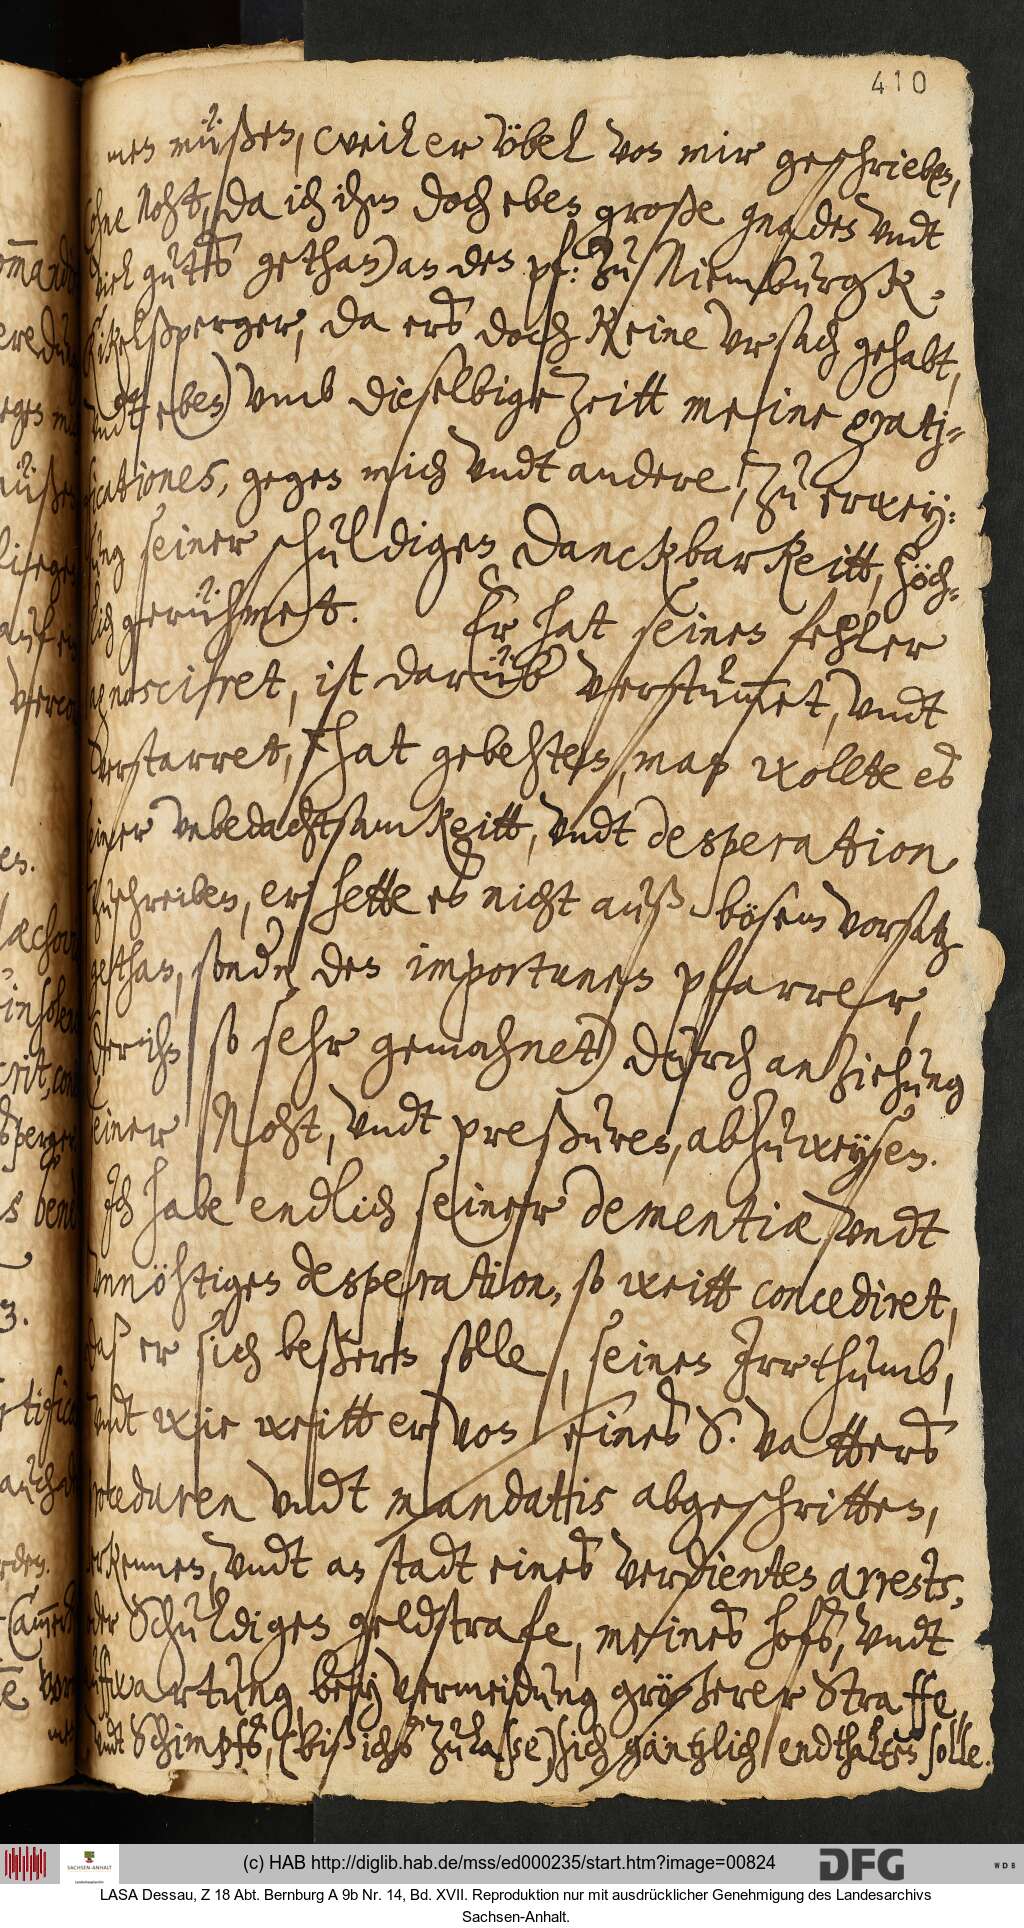 410
nen müßen, (weil er vbel von mir geschrieben,
ohne Noht, da ich ihm doch eben große gnaden vndt
viel guts gethan) an den pf: zu Niemburgk.
da ers doch keine vrsach gehabt,
vndt eben vmb dieselbige Zeitt meine grati-
ficationes, gegen mich vndt andere, zu erwey-
sung seiner schuldigen Danckbarkeitt, höch-
lich gerühmet. Er hat seinen fehler
agnosciret, ist darüb verstummet, vndt
verstarret, hat gebehten, man wollte es
seiner vnbedachtsamkeitt, vndt desperation
zuschreiben, er hette es nicht auß bösem vorsatz
gethan, sondern den importunen pfarrer,
der ihn so sehr gemahnet) durch anziehung
seiner Noht, vndt preßuren, abzuweysen.
Jch habe endlich seiner dementiæ vndt
vnnöhtigen desperation, so weitt concediret,
daß er sich beßern solle, seinen Jrrthumb,
vndt wie weitt er von seines S. vatters
proceduren vndt mandattis abgeschritten,
erkennen, vndt an stadt eines verdienten arrests,
oder Schuldigen geldstrafe, meines hofs, vndt
auffwartung bey vermeidung größerer Straffe,
vndt Schimpfs, (biß ichs zulaße) sich gäntzlich endthalten solle.
(c) HAB http://diglib.hab.de/mss/ed000235/start.htm?image=00824
SACHSEN-ANHALT
DFG
WDB
LASA Dessau, Z 18 Abt. Bernburg A 9b Nr. 14, Bd. XVII. Reproduktion nur mit ausdrücklicher Genehmigung des Landesarchivs
Sachsen-Anhalt.